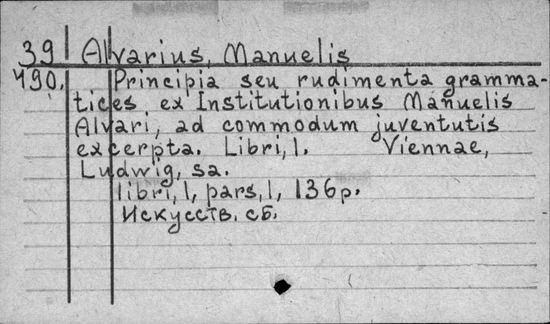 39 Alvarius, Manuelis
490. Principia seu rudimenta gramma-
tices ex Institutionibus Manuelis
Alvari, ad commodum juventutis
excerpta. Libri, 1. Viennae,
Ludwig, sa.
libri, 1, pars, 1, 136p.
Искусств. сб.